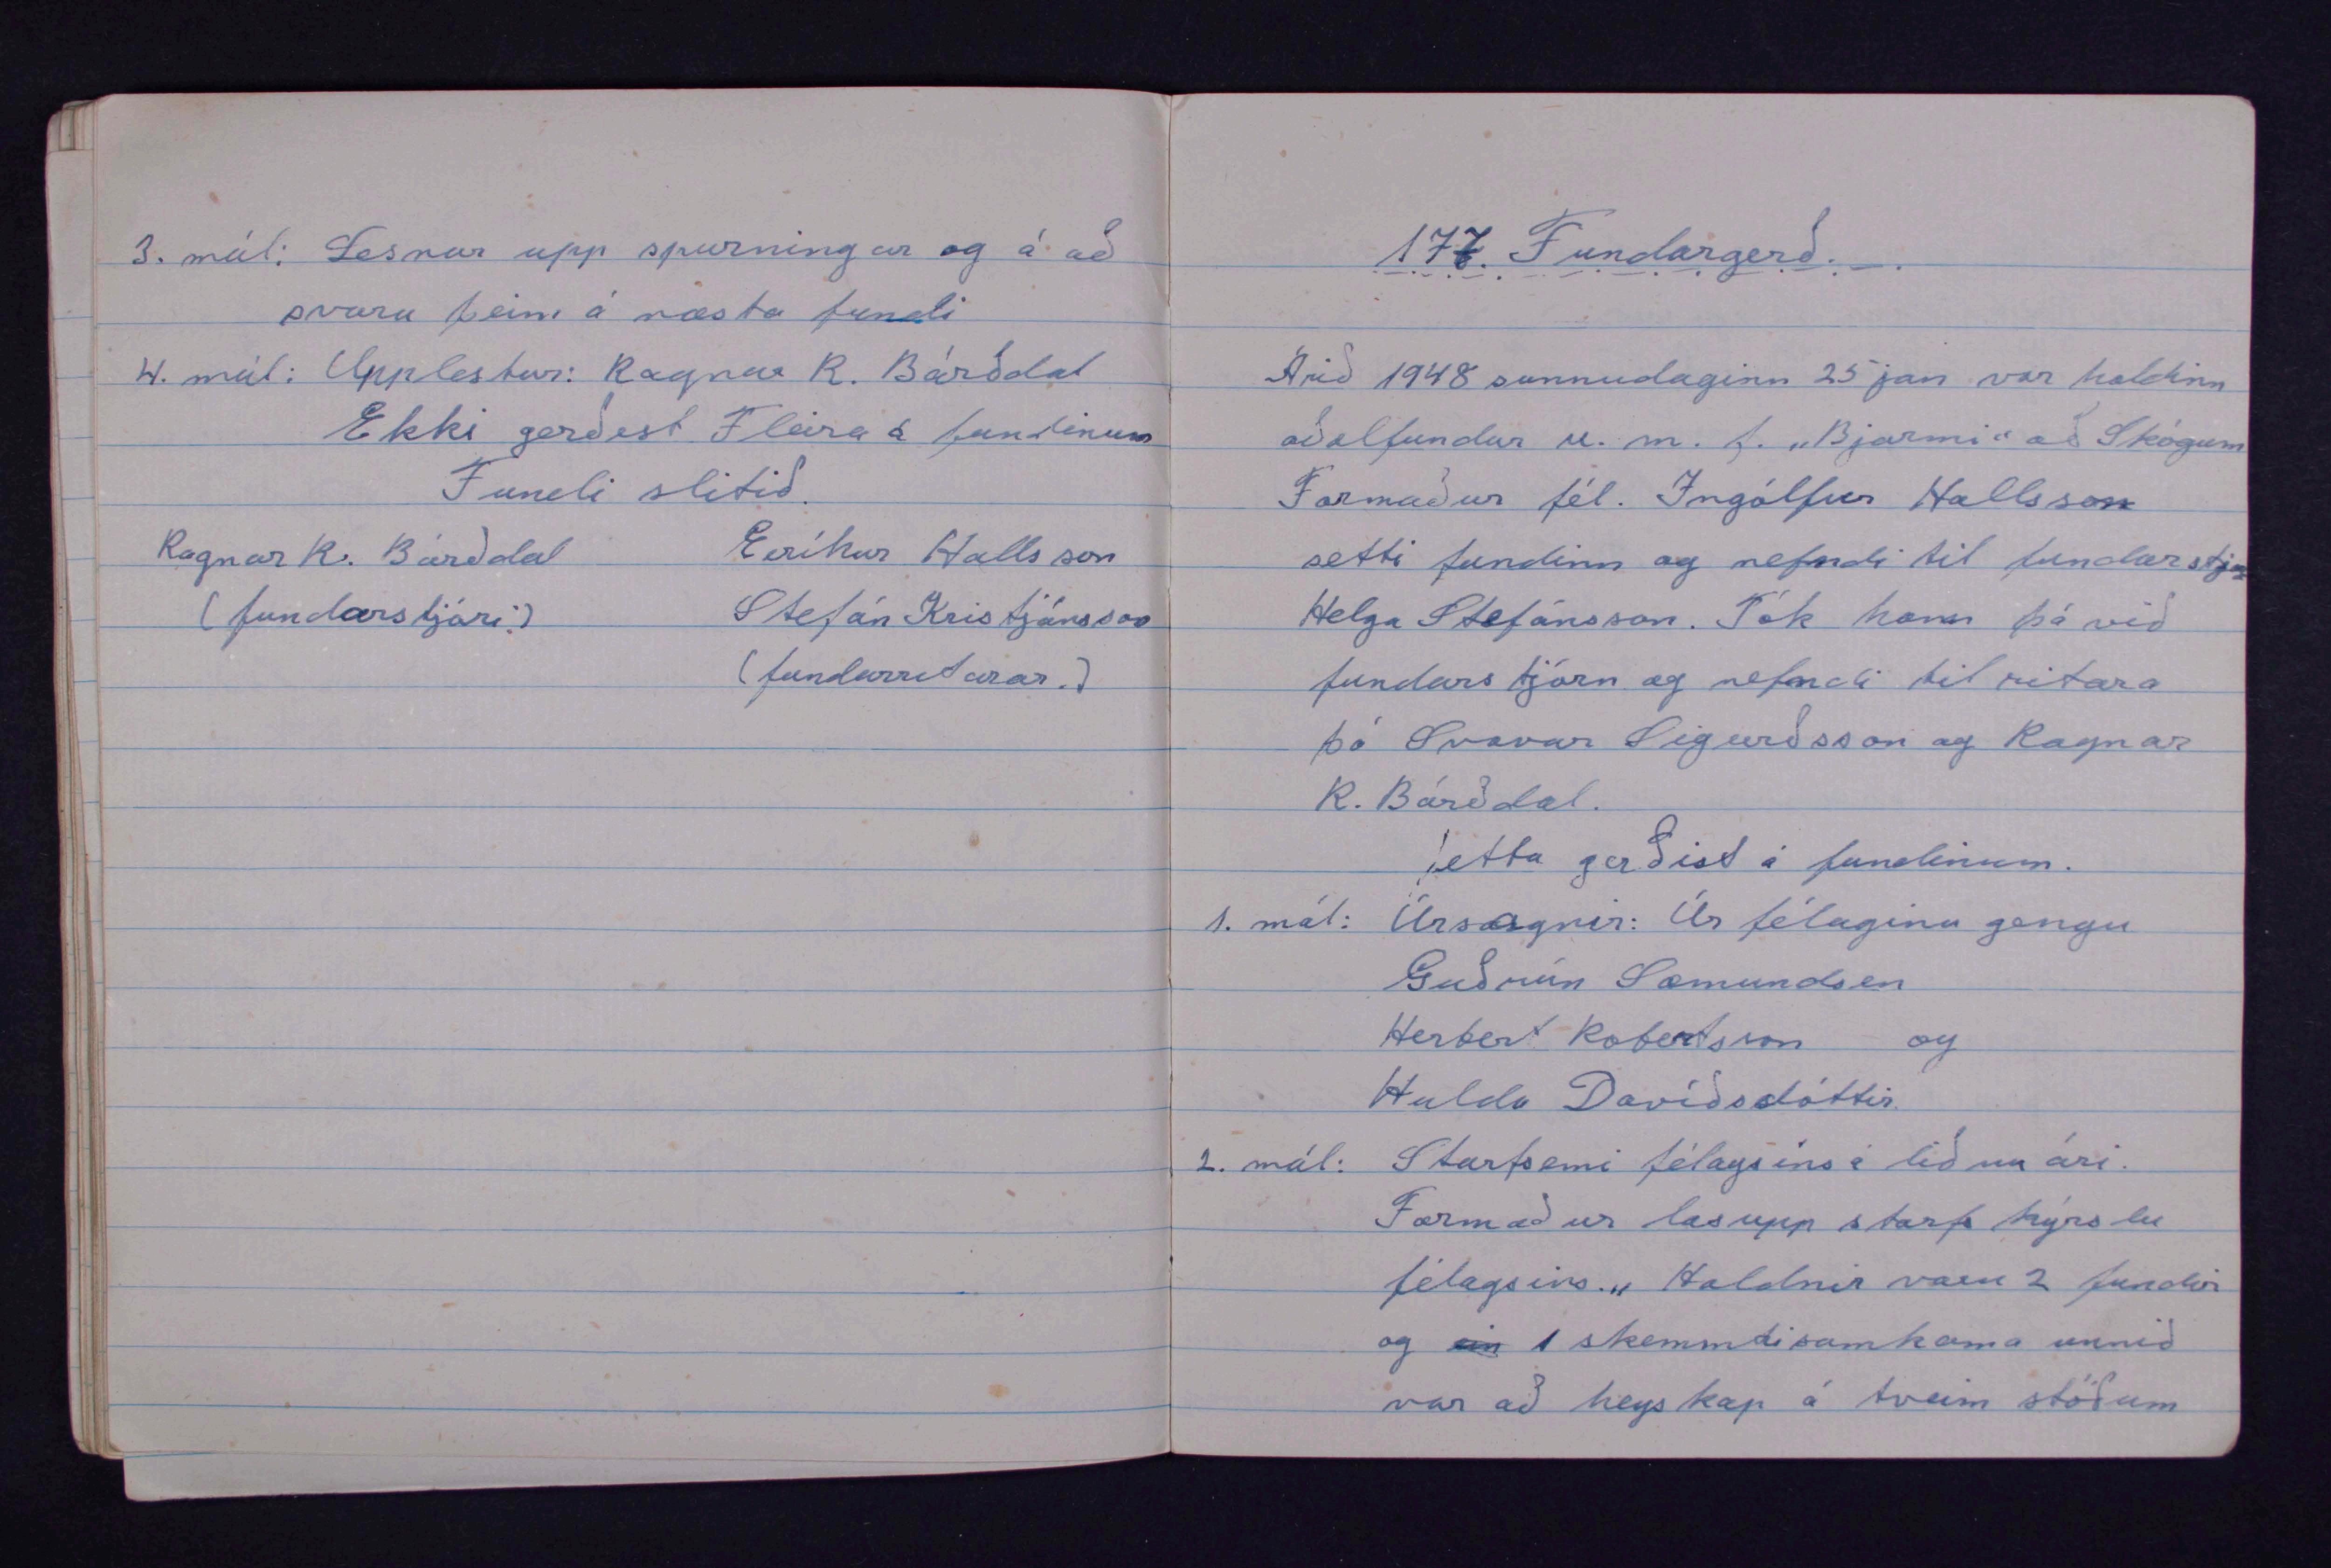 3. mál: Lesnar upp spurningar og á að
svara þeim á næsta fundi
4. mál: Upplestur: Ragnar R. Bárðdal
Ekki gerðest Fleira á fundinum
Fundi slitið.
Ragnar R. Bárðdal
(fundarstjóri)
Eiríkur Hallsson
Stefán Kristjánsson
(fundarritarar.)
177. Fundargerð.
Árið 1948 sunnudaginn 25 jan var haldinn
aðalfundur u. m. f. „Bjarmi“ að Skógum
Formaður fél. Ingólfur Hallsson
setti fundinn og nefndi til fundarstj
Helga Stefánsson. Tók hann þá við
fundarstjórn og nefndi til ritara
þá Svavar Sigurðsson og Ragnar
R. Bárðdal.
Þetta gerðist á fundinum.
1. mál: Úrsagnir: Úr félaginu gengu
Guðrún Sæmundsen
Herbert Robertsson og
Hulda Davíðsdóttir
2. mál: Starfsemi félagsins á liðnu ári.
Formaður las upp starfskýrslu
félagsins. „ Haldnir voru 2 fundir
og ein 1 skemmtisamkoma unnið
var að heyskap á tveim stöðum